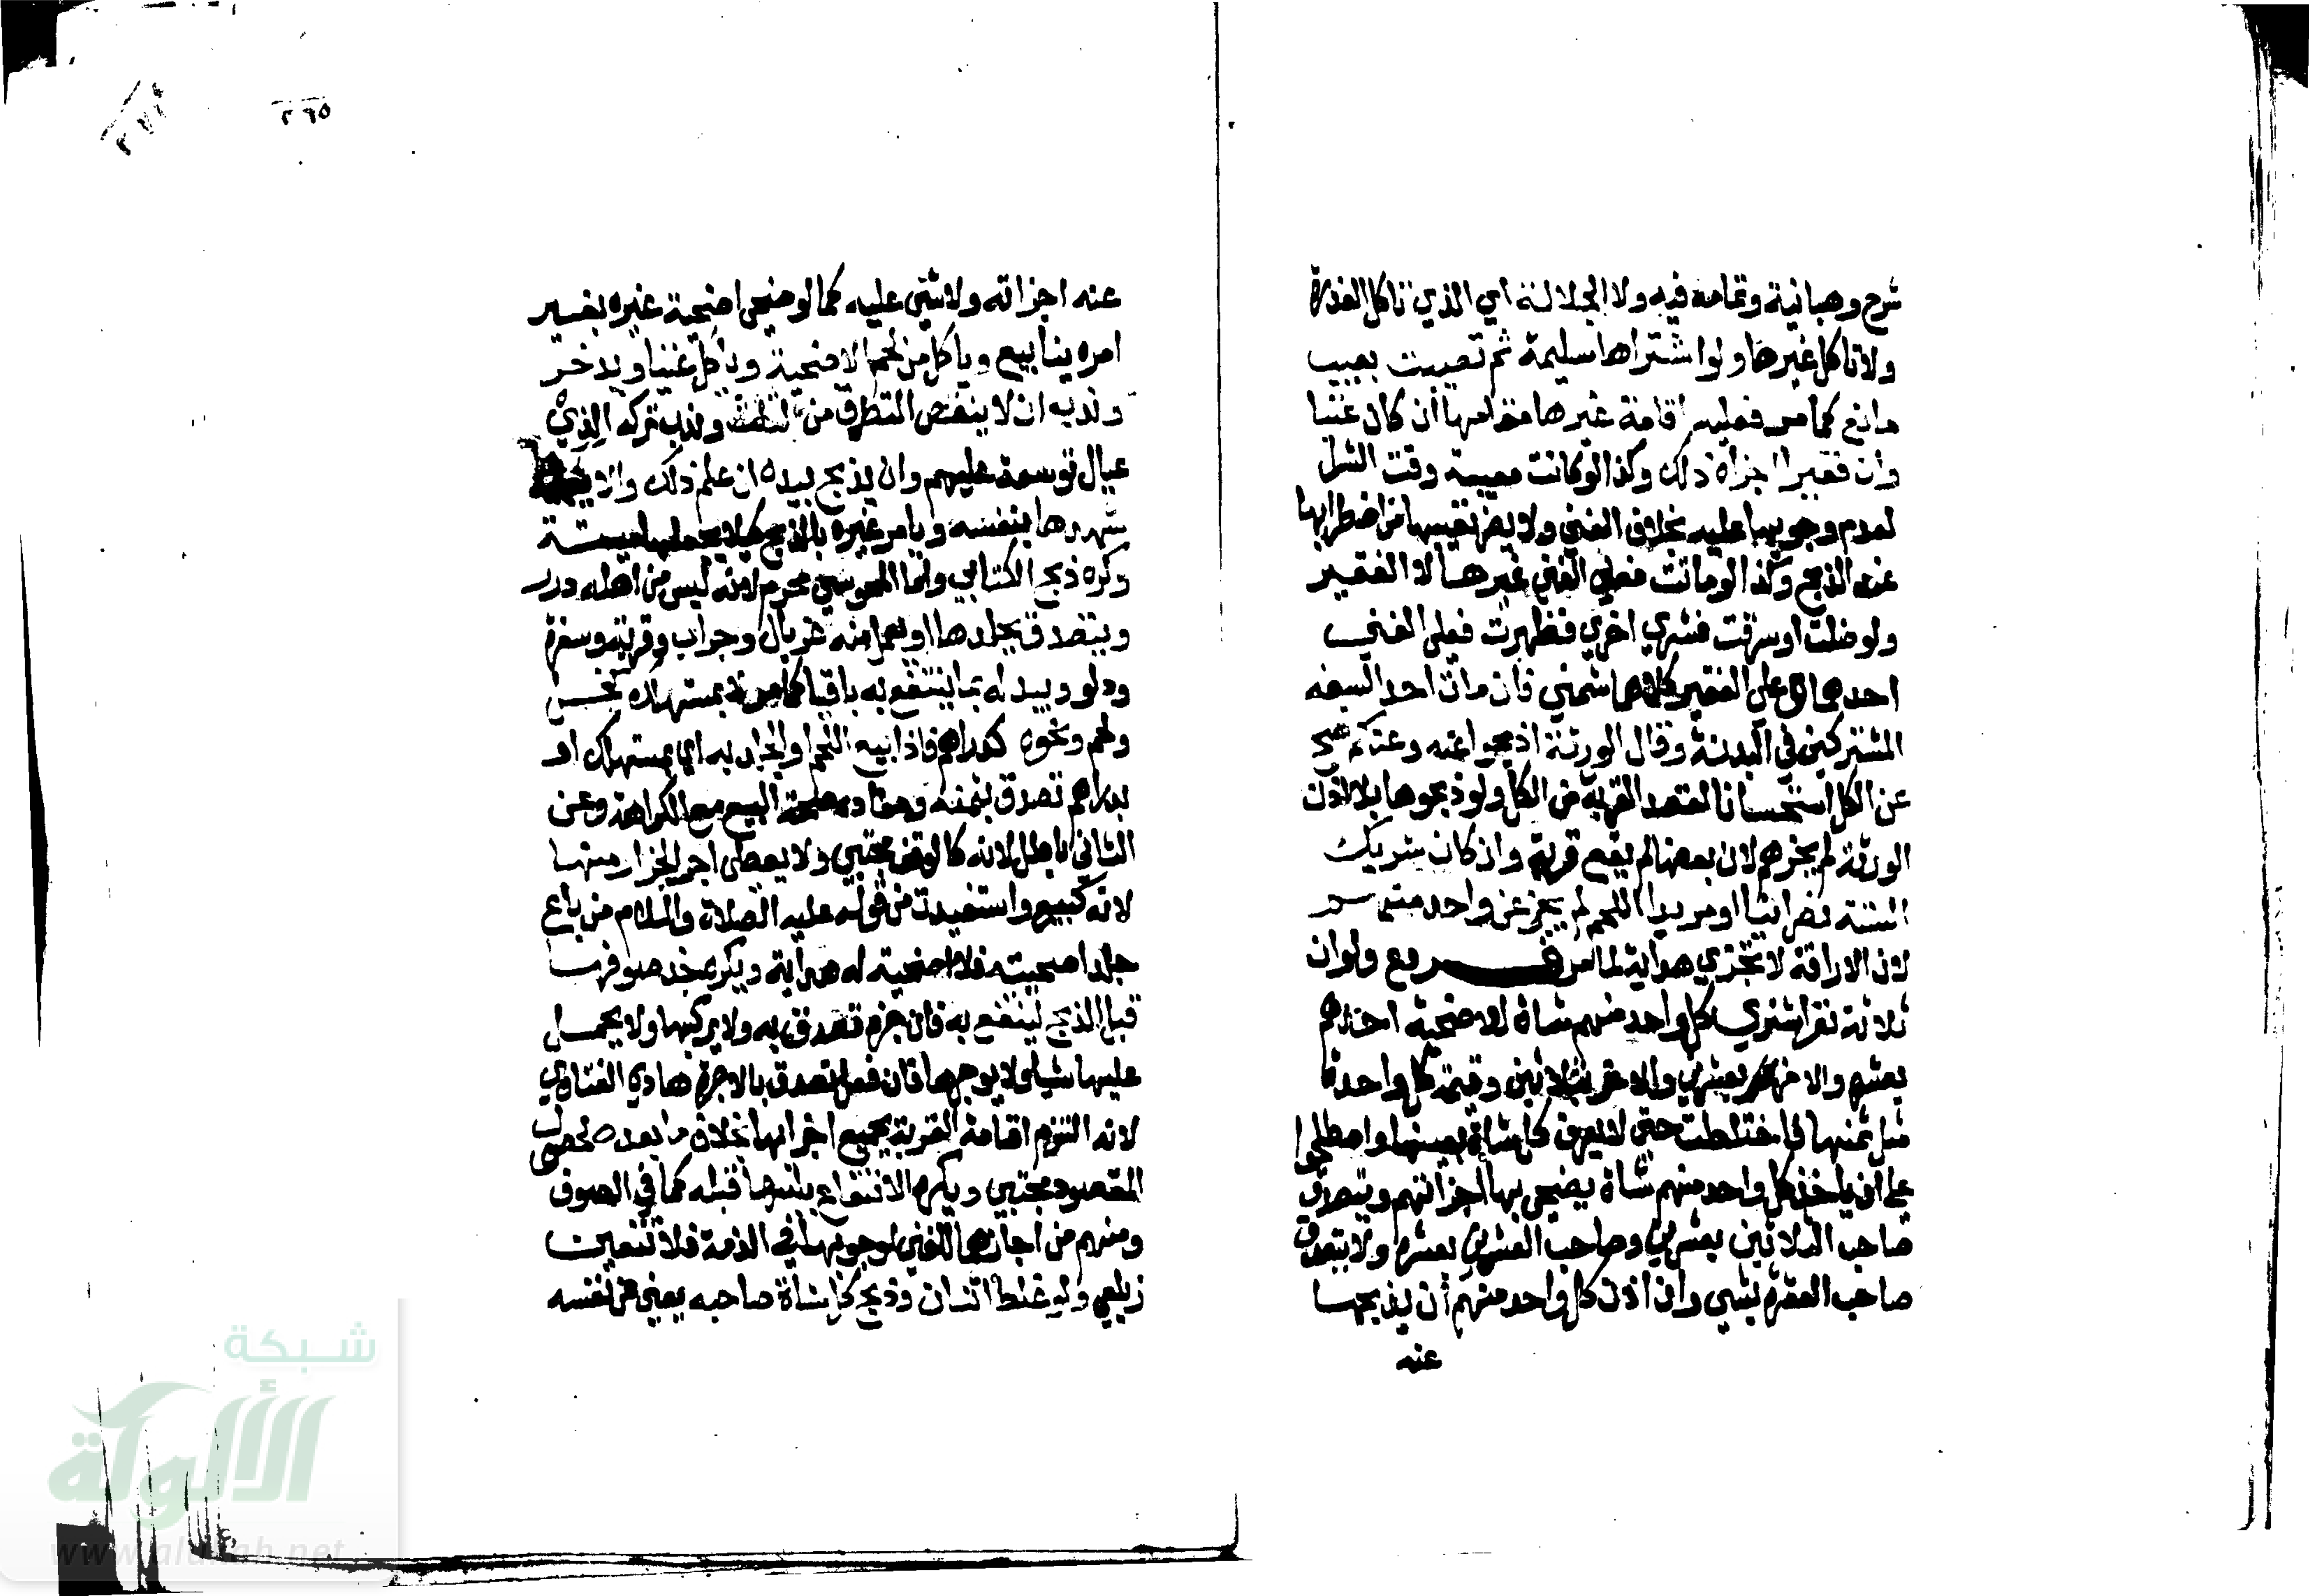 شرح وهبانية وتمامه فيه ولا الجلالة اي الذي تاكل العذرة
ولا تاكل غيرها ولو اشتراها سليمة ثم تعيبت بعيب
مانع كما مر فعليه اقامة غيرها مقامها ان كان غنيا
وان فقيرا اجزاه ذلك وكذا لو كانت معيبة وقت الشرا
لعدم وجوبها عليه بخلاف الغني ولا يضر تعيبها من اضطرابها
عند الذبح وكذا لو ماتت فعلى الغني غيرها لا الفقير
ولو ضلت او سرقت فشرى اخرى فظهرت فعلى الغني
احدهما وعلى الفقير كلاهما شمني فان مات احد السبعة
المشتركين في البدنة وقال الورثة اذبحوا عنه وعنكم صح
عن الكل استحسانا لقصد القربة من الكل ولو ذبحوها بلا اذن
الورثة لم يجزهم لان بعضها لم يقع قربة وان كان شريك
الستة نصرانيا او مريدا اللحم لم يجز عن واحد منهم
لان الاراقة لا تتجزي هداية لما مر فروع ولو ان
ثلاثة نفر اشترى كل واحد منهم شاة للاضحية احدهم
بعشرة والاخر بعشرين والاخر بثلاثين وقيمة كل واحدة
مثل ثمنها فاختلطت حتى لا يعرف كل شاته بعينها واصطلحوا
على ان ياخذ كل واحد منهم شاة يضحي بها اجزاتهم ويتصدق
صاحب الثلاثين بعشرين وصاحب العشرين بعشرة ولا يتصدق
صاحب العشرة بشي وان اذن كل واحد منهم ان يذبحها
عنه
٢٦٥
عنه اجزاته ولا شي عليه كما لو ضحى اضحية غيره بغير
امره ينابيع وياكل من لحم الاضحية وياكل غنيا ويدخر
وندب ان لا ينقص التصدق من الثلث وندب تركه لذي
عيال توسعة عليهم وان يذبح بيده ان علم ذلك والا
شهدها بنفسه ويامر غيره بالذبح كيلا يجعلها ميتة
وكره ذبح الكتابي واما المجوسي فيحرم لانه ليس من اهله درر
ويتصدق بجلدها او يعمل منه غربال وجراب وقربة وسفرة
ودلو ويبدله بما ينتفع به باقيا كما مر لا بمستهلك كخل
ولحم ونحوه كدراهم فاذا بيع اللحم او الجلد به اي بمستهلك او
بدراهم تصدق بثمنه ومفاده صحة البيع مع الكراهة وعن
الثاني باطل لانه كالوقف مجتبى ولا يعطى اجر الجزار منها
لانه كبيع واستفيدت من قوله عليه الصلاة والسلام من باع
جلد اضحيته فلا اضحية له هداية ويكره جز صوفها
قبل الذبح لينتفع به فان جزه تصدق به ولا يركبها ولا يحمل
عليها شيا ولا يوجرها فان فعل تصدق بالاجرة حاوي الفتاوى
لانه التزم اقامة القربة بجميع اجزائها بخلاف ما بعده لحصول
المقصود مجتبى ويكره الانتفاع بلبنها قبله كما في الصوف
ومنهم من اجازهما للغني لوجوبها في الذمة فلا تتعين
زيلعي ولو غلط اثنان وذبح كل شاة صاحبه يعني عن نفسه
شبكة
الألوكة
www.alukah.net